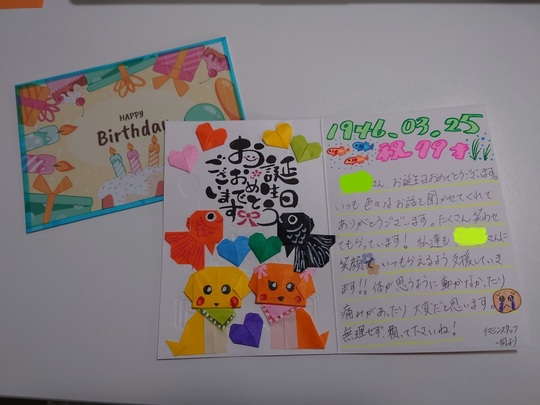 HAPPY
Birthday
お誕生日
おめでとう
ございます
1946.03.25
祝79才
さん、お誕生日おめでとうございます。
いつも色々なお話を聞かせてくれて
ありがとうございます。たくさん笑わせ
てもらっています! 私達も さんに
笑顔でいてもらえるよう支援していき
ます!! 体が思うように動かなかったり
痛みがあったり、大変だと思います。
無理せず、頼って下さいね!
スタッフ
一同より